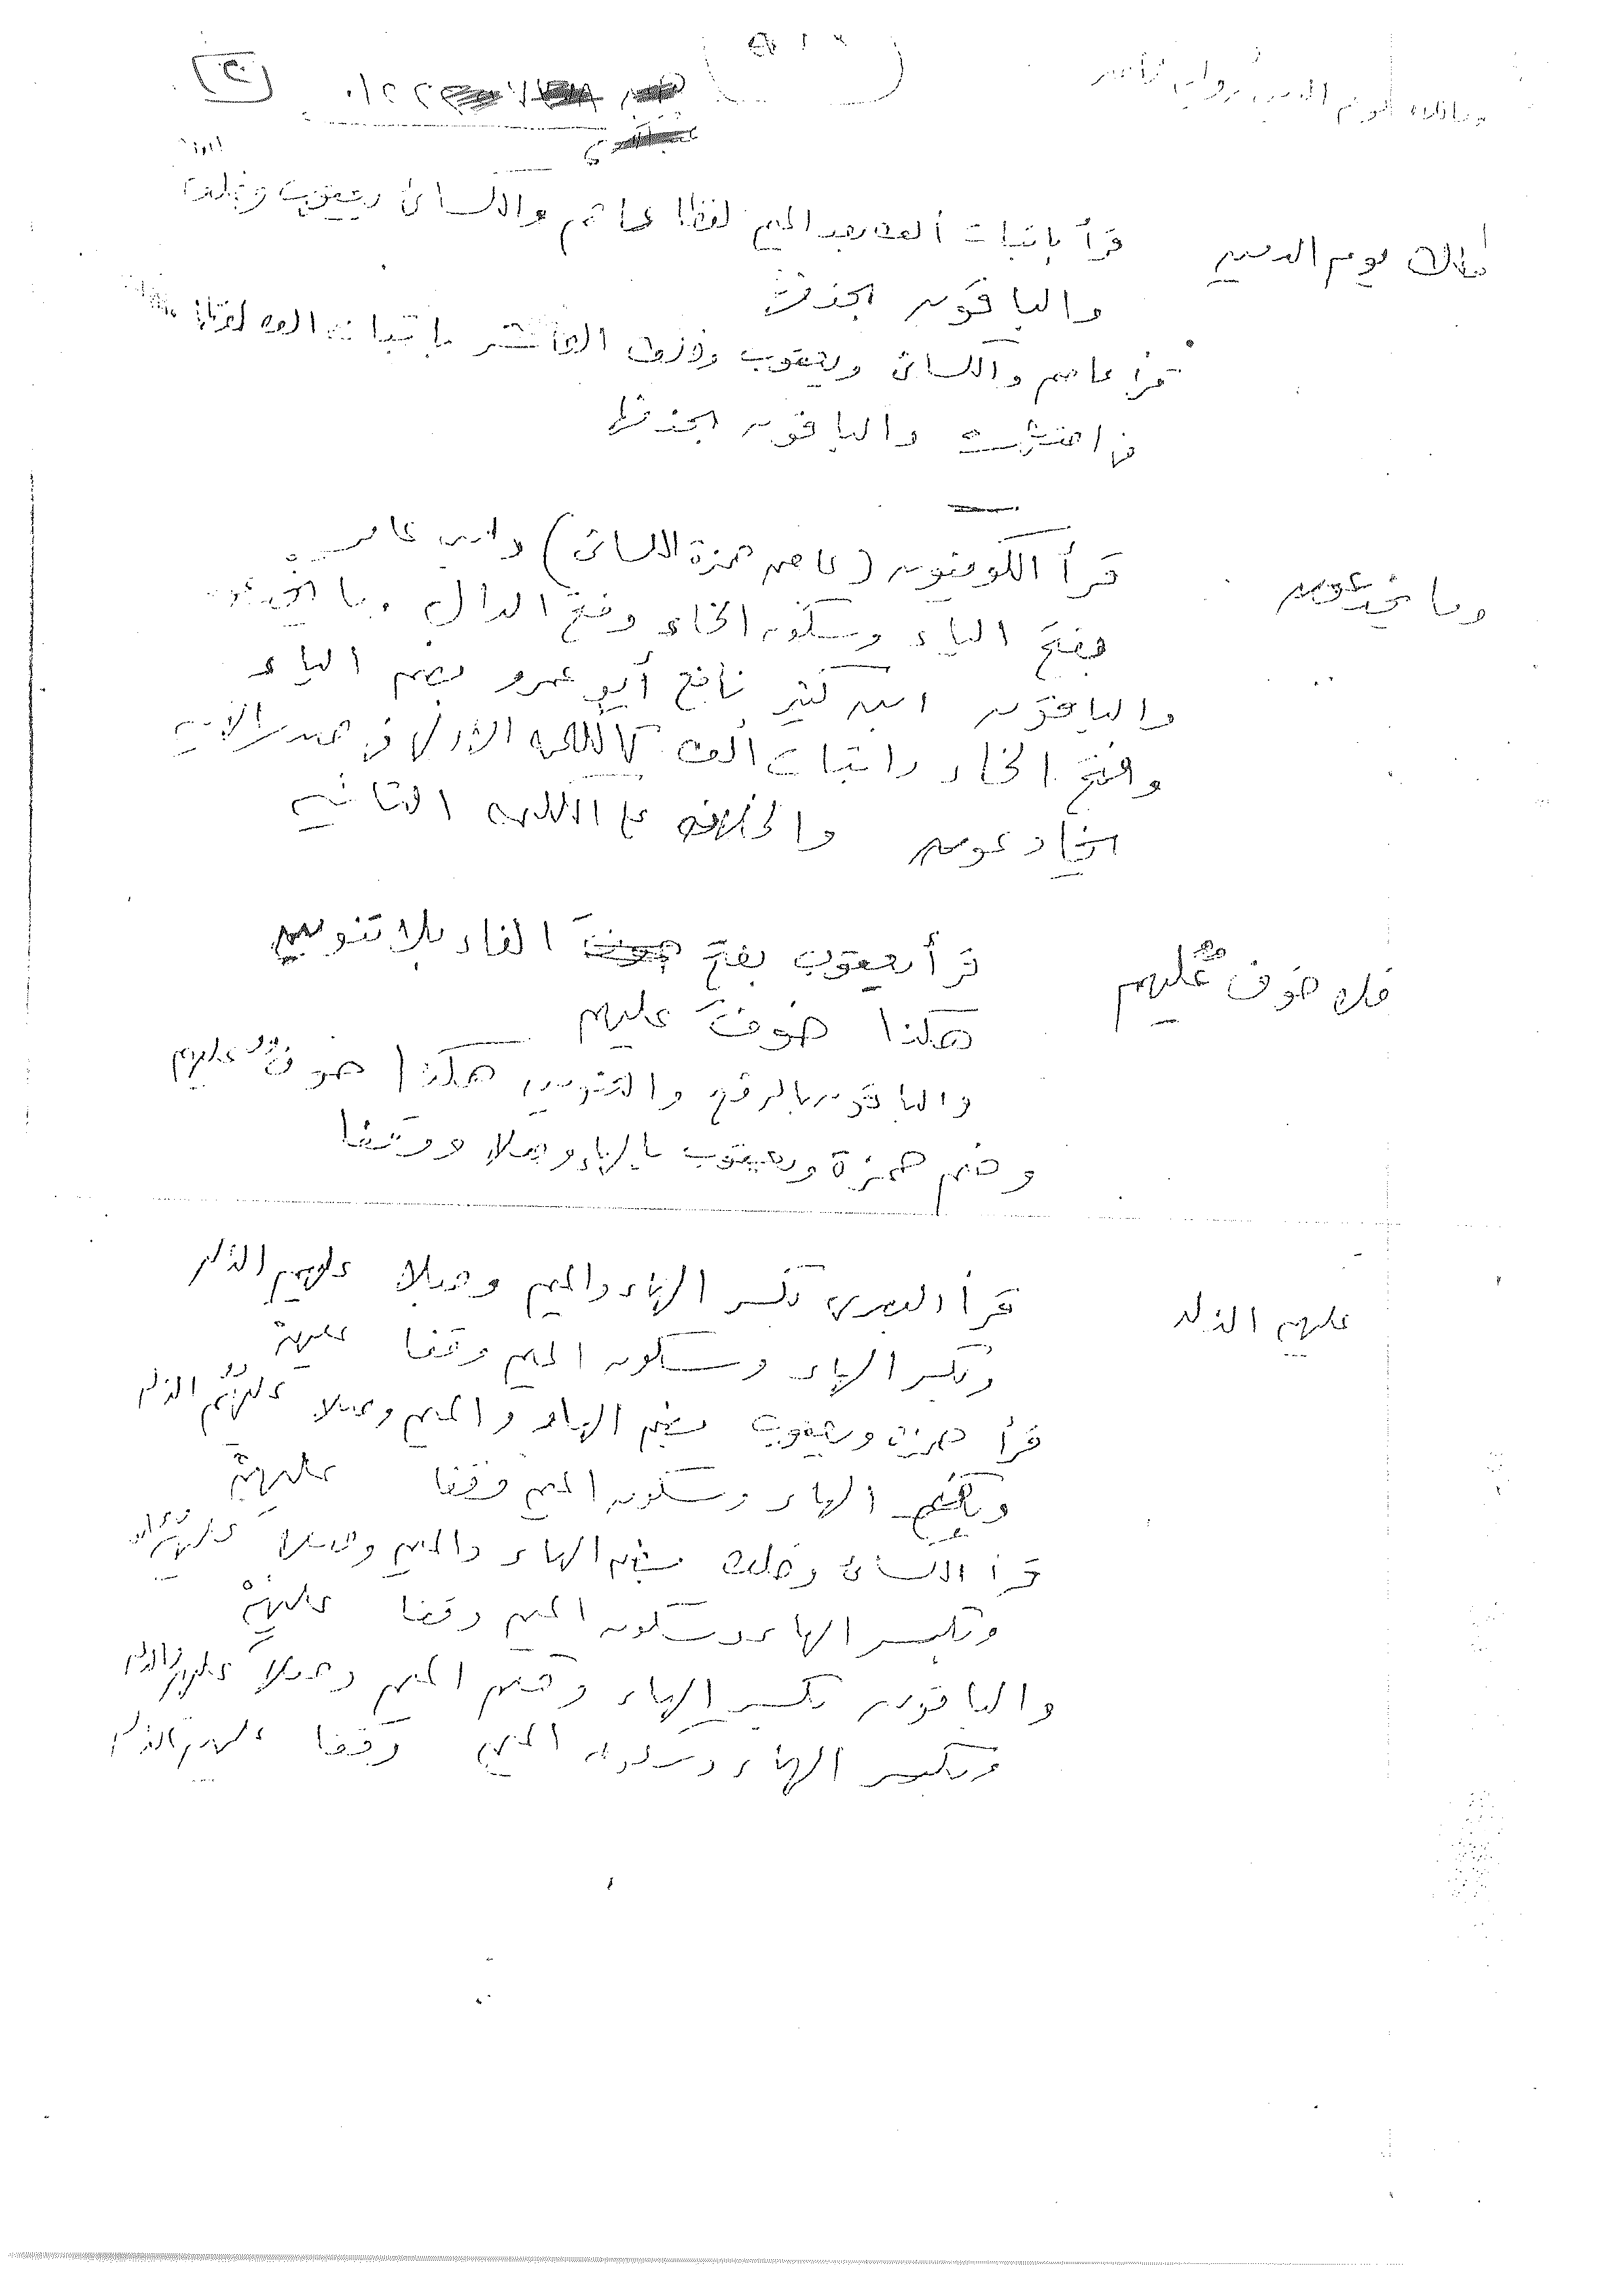 مالك يوم الدين قرأ بإثبات ألف بعد الميم لفظا عاصم والكسائى ويعقوب وخلف
والباقون بحذفها
قرأ عاصم والكسائى ويعقوب وخلف العاشر بإثبات الف لفظا
فى اختياره والباقون بحذفها
وما يخدعون قرأ الكوفيون (عاصم حمزة الكسائى) وابن عامر
بفتح الياء وسكون الخاء وفتح الدال وما يخدعون
والباقون ابن كثير نافع أبو عمرو بضم الياء
وفتح الخاء واثبات ألف كالكلمة الأولى فى صدر الآية
يخادعون والخلاف على الكلمة الثانية
فلا خوف عليهم قرأ يعقوب بفتح الفاء بلا تنوين
هكذا خوفَ عليهم
والباقون بالرفع والتنوين هكذا خوفٌ عليهم
وضم حمزة ويعقوب بالهاء وصلا ووقفا
عليهم الذلة قرأ البصرى بكسر الهاء والميم وصلا عليهِمِ الذلة
وبكسر الهاء وسكون الميم وقفا عليهِمْ
قرأ حمزة ويعقوب بضم الهاء والميم وصلا عليهُمُ الذلة
وبضم الهاء وسكون الميم وقفا عليهُمْ
قرأ الكسائى وخلف بضم الهاء والميم وصلا
وبكسر الهاء وسكون الميم وقفا عليهِمْ
والباقون بكسر الهاء وضم الميم وصلا عليهِمُ الذلة
وبكسر الهاء وسكون الميم وقفا عليهم الذلة